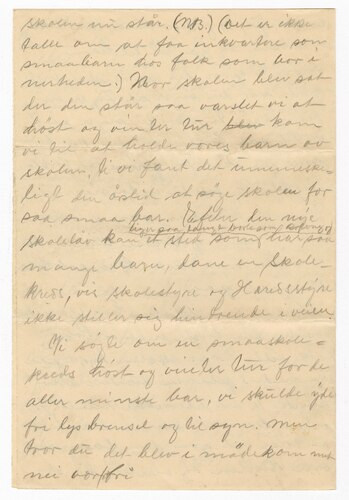 skolen nu står. (NB.) (Det er ikke
talle om at faa inkvartere som
smaabarn hos folk som bor i
nerheden.) Nor skolen blev sat
der den står saa varslet vi at
höst og vinter tur blev kom
vi til at holde vores barn av
skolen, ti vi fant det inmenneske-
ligt den årstid at söge skolen for
saa smaa bar. Efter den nye
skolelov kan et sted som har saa
mange barn, dane en skole-
kreds, vis skolestyre og Heredsstyre
ikke stiller sig hindrende i veien
Vi søgte om en smaaskole-
kreds höst og vinter tur for de
aller minste bar, vi skulde yde
fri lys brensel og til syn. men
tror du det blev imödekommet
nei